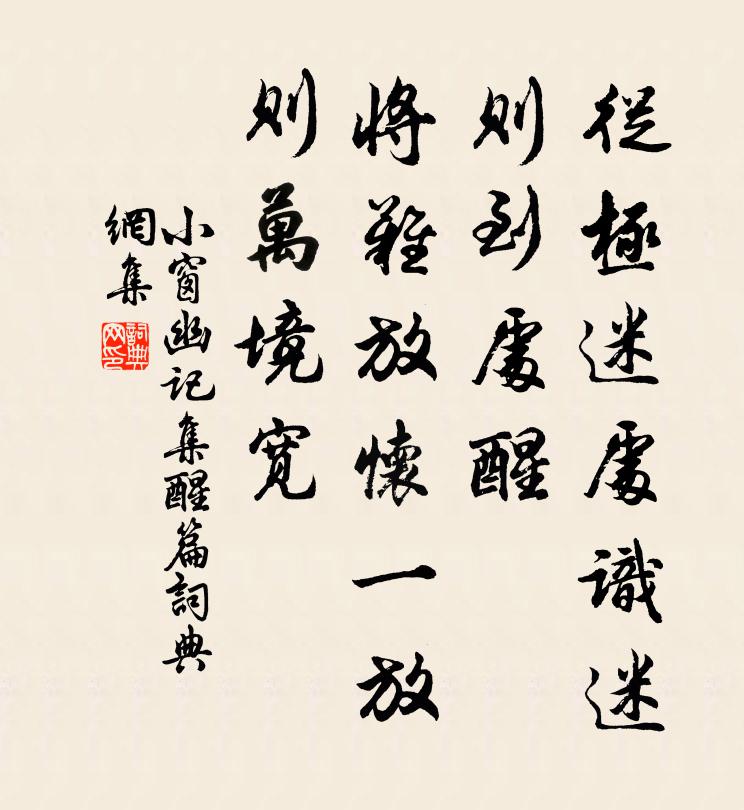 從極迷處識迷
則到處醒
將難放懷一放
則萬境寬
小窗幽記集醒篇詞典
網集
詞典
网印